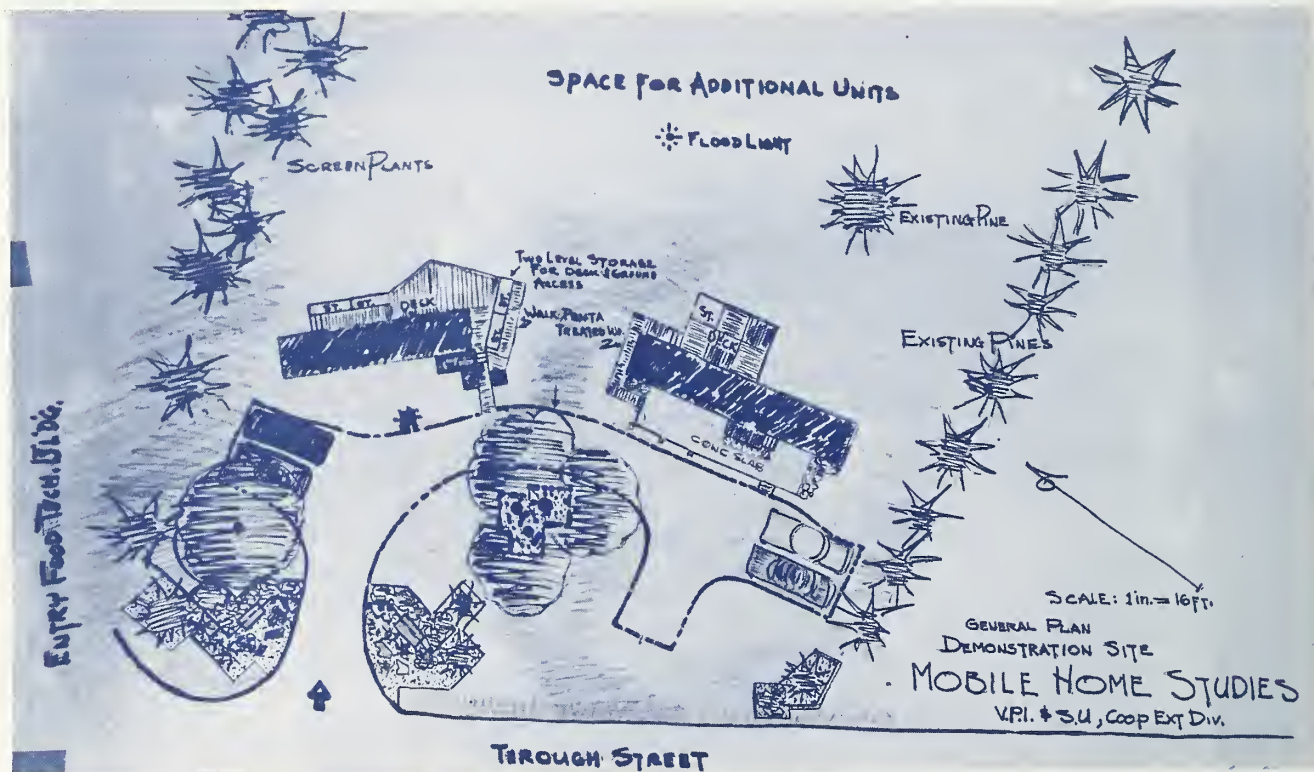 SPACE FOR ADDITIONAL UNITS
FLOOD LIGHT
SCREEN PLANTS
EXISTING PINE
TWO LEVEL STORAGE
FOR DECK & GROUND
ACCESS
ST.
DECK
ST.
ST.
WALK, PENTA
TREATED WD.
ST.
DECK
EXISTING PINES
CONC SLAB
ENTRY FOOD TECH. BLD'G.
SCALE: 1 in. = 16 FT.
GENERAL PLAN
DEMONSTRATION SITE
MOBILE HOME STUDIES
V.P.I. & S.U., COOP EXT DIV.
THROUGH STREET